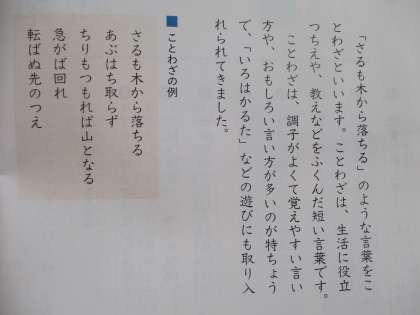 「さるも木から落ちる」のような言葉をこ
とわざといいます。ことわざは、生活に役立
つちえや、教えなどをふくんだ短い言葉です。
ことわざは、調子がよくて覚えやすい言い
方や、おもしろい言い方が多いのが特ちょう
で、「いろはかるた」などの遊びにも取り入
れられてきました。
ことわざの例
さるも木から落ちる
あぶはち取らず
ちりもつもれば山となる
急がば回れ
転ばぬ先のつえ